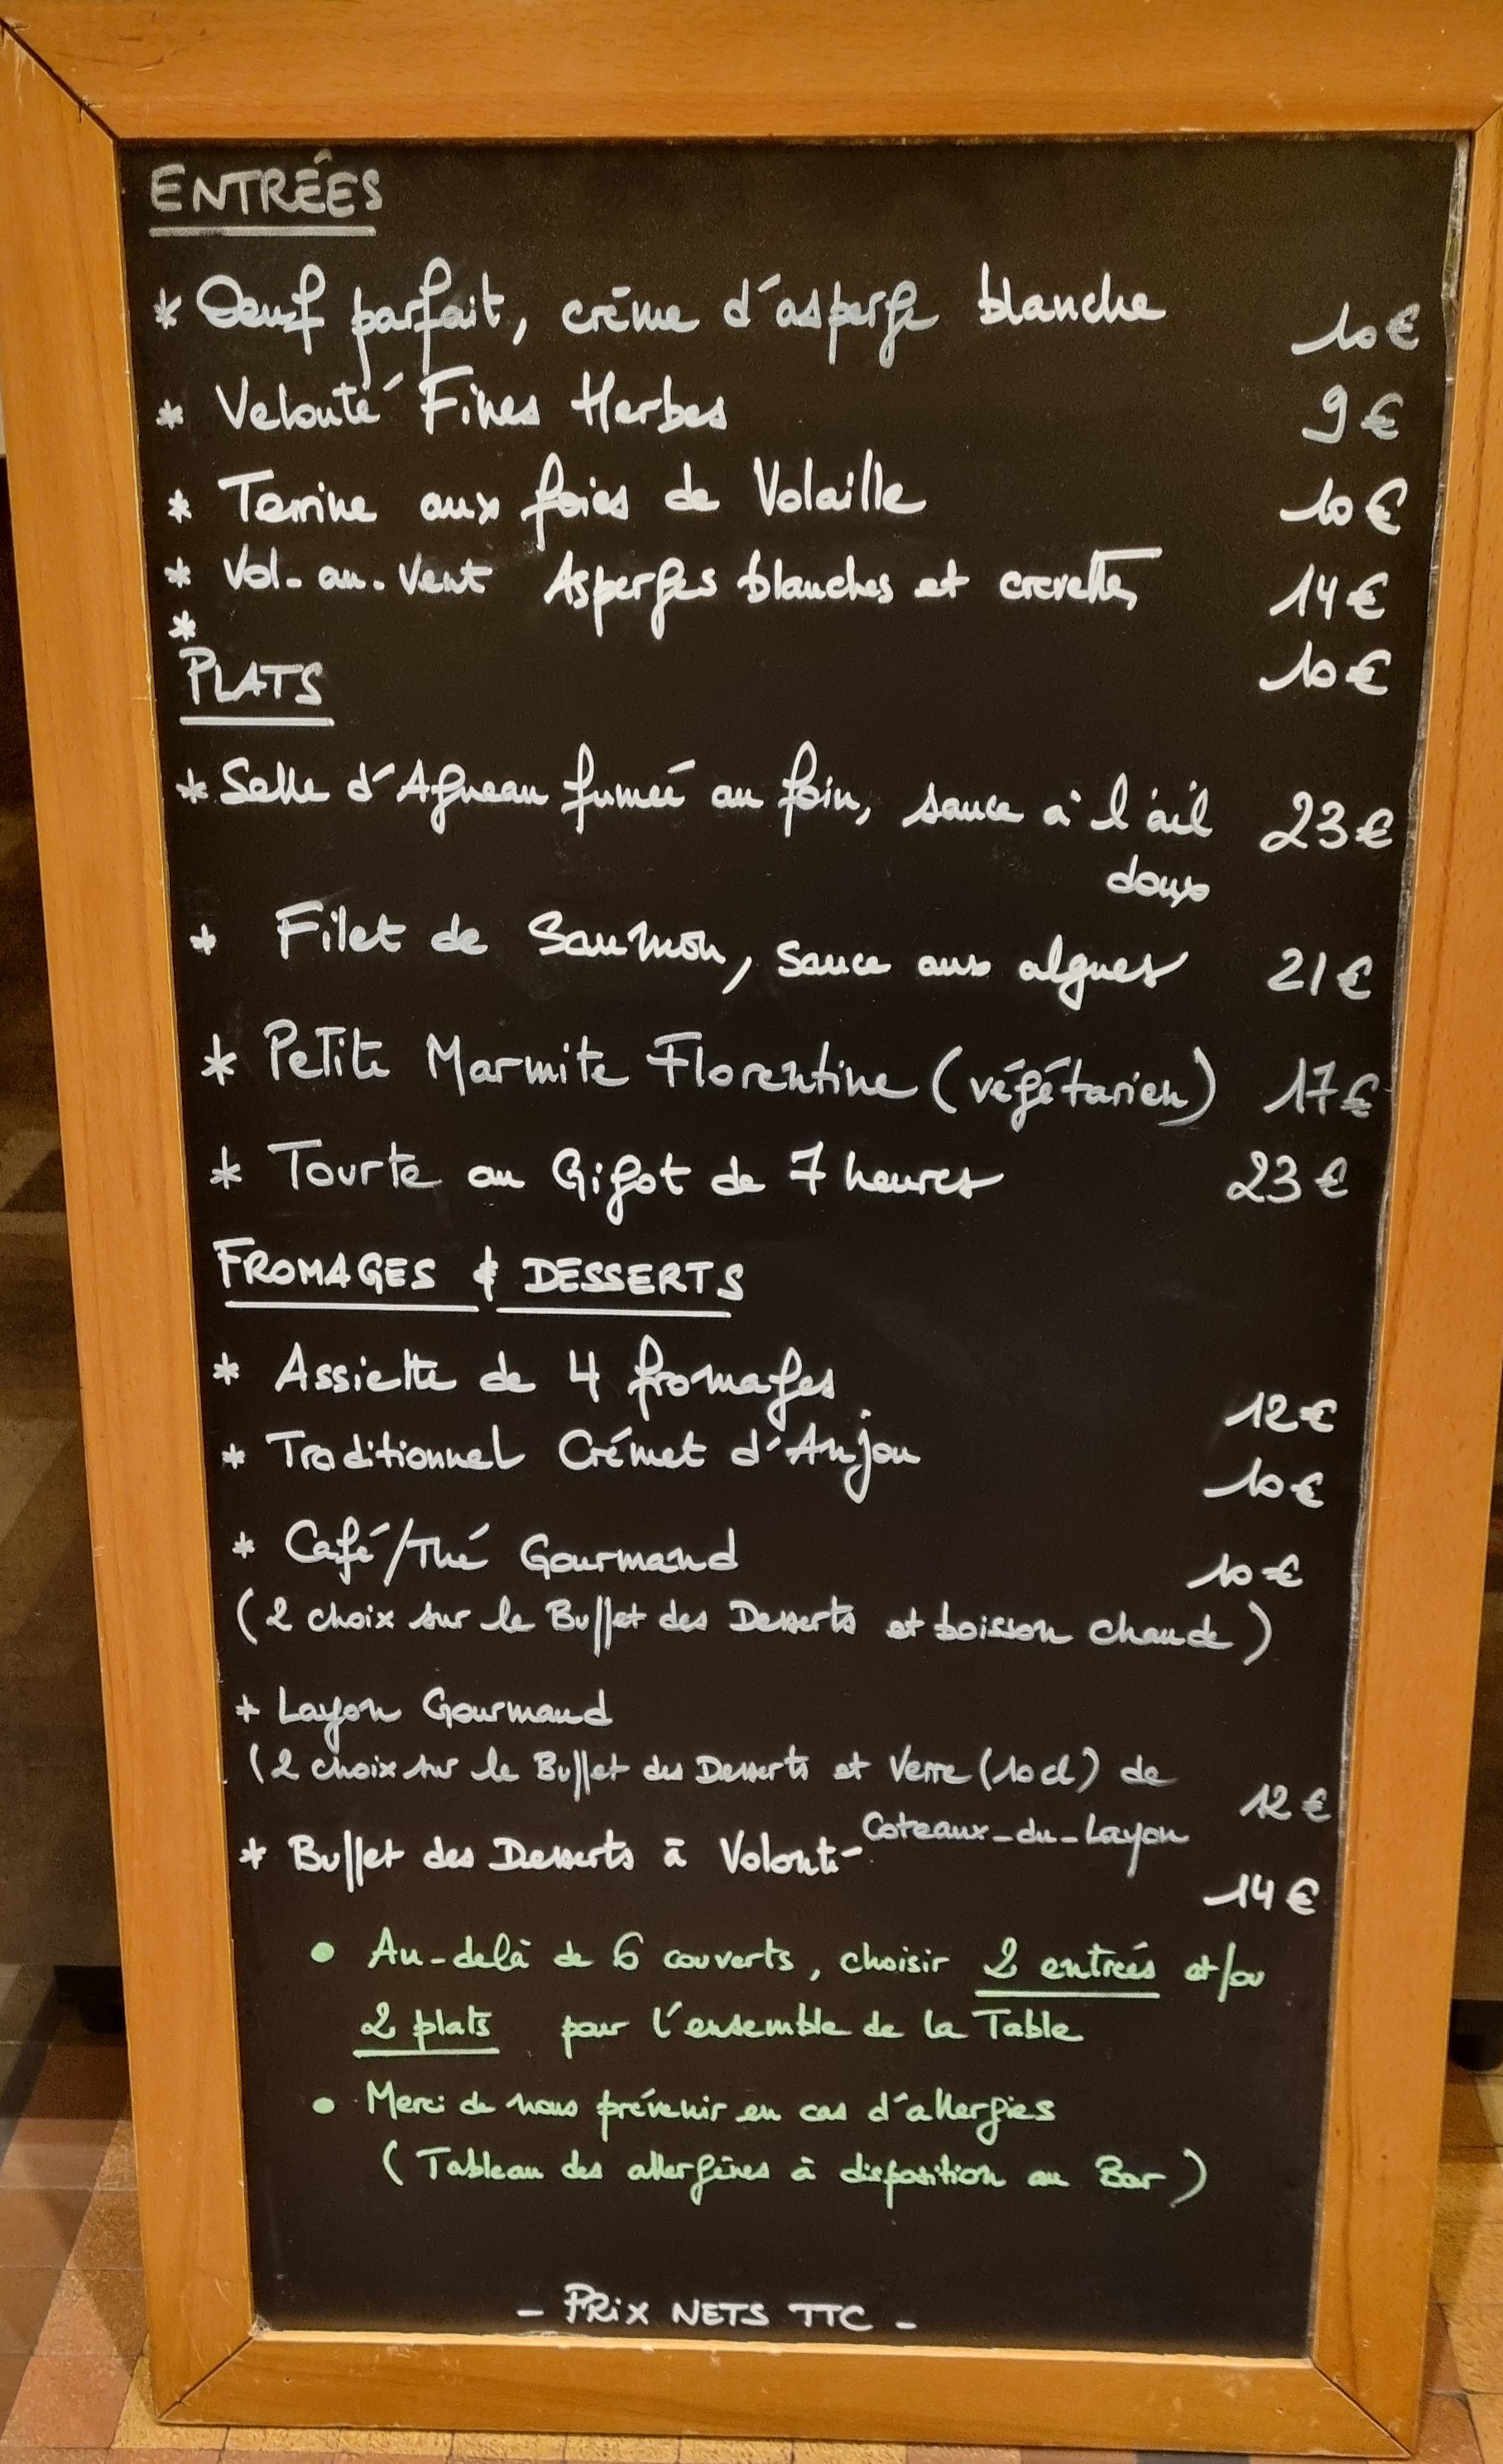 ENTRÉES
* Oeuf parfait, crème d'asperge blanche 10€
* Velouté Fines Herbes 9€
* Terrine aux foies de Volaille 10€
* Vol-au-Vent Asperges blanches et crevettes 14€
* 10€
PLATS
* Selle d'Agneau fumée au foin, sauce à l'ail 23€
doux
* Filet de Saumon, sauce aux algues 21€
* Petite Marmite Florentine (végétarien) 17€
* Tourte au Gigot de 7 heures 23€
FROMAGES & DESSERTS
* Assiette de 4 fromages 12€
* Traditionnel Crémet d'Anjou 10€
* Café/Thé Gourmand 10€
(2 choix sur le Buffet des Desserts et boisson chaude)
* Layon Gourmand
(2 choix sur le Buffet des Desserts et Verre (10cl) de 12€
Coteaux-du-Layon
* Buffet des Desserts à Volonté 14€
• Au-delà de 6 couverts, choisir 2 entrées et/ou
2 plats pour l'ensemble de la Table
• Merci de nous prévenir en cas d'allergies
(Tableau des allergènes à disposition au Bar)
- PRIX NETS TTC -